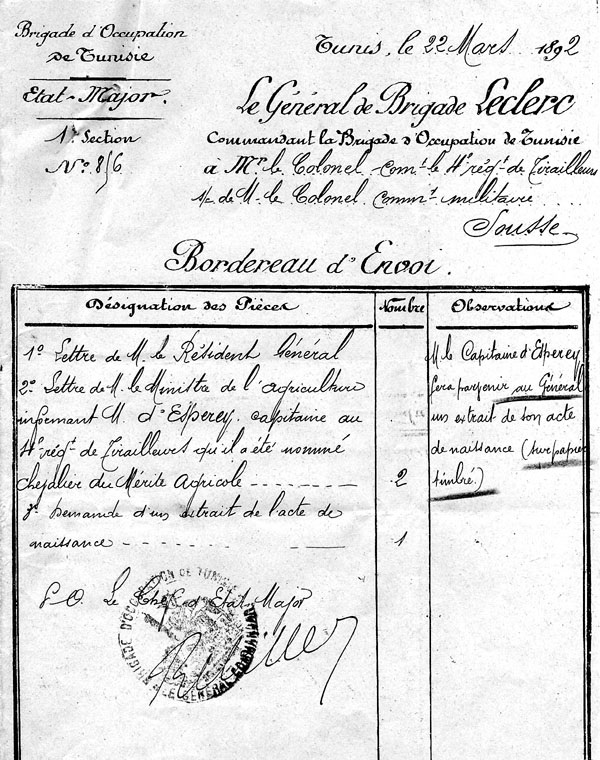 Brigade d'Occupation
de Tunisie
Etat-Major.
1re Section
No 816
Tunis, le 22 Mars 1892
Le Général de Brigade Leclerc
Commandant la Brigade d'Occupation de Tunisie
à Mr le Colonel comt le 4e régt de Tirailleurs
de M. le Colonel commt militaire
Sousse
Bordereau d'Envoi.
Désignation des Pièces
Nombre
Observations
1o Lettre de M. le Résident Général
2o Lettre de M. le Ministre de l'agriculture
informant M. d'Esperey, capitaine au
4e régt de Tirailleurs qu'il a été nommé
chevalier du Mérite Agricole
2
3o Demande d'un extrait de l'acte de
naissance
1
M. le Capitaine d'Esperey
fera parvenir au Général
un extrait de son acte
de naissance (sur papier
timbré.)
P.O. Le Chef d'Etat-Major
BRIGADE D'OCCUPATION DE TUNISIE
LE GÉNÉRAL COMMANDANT